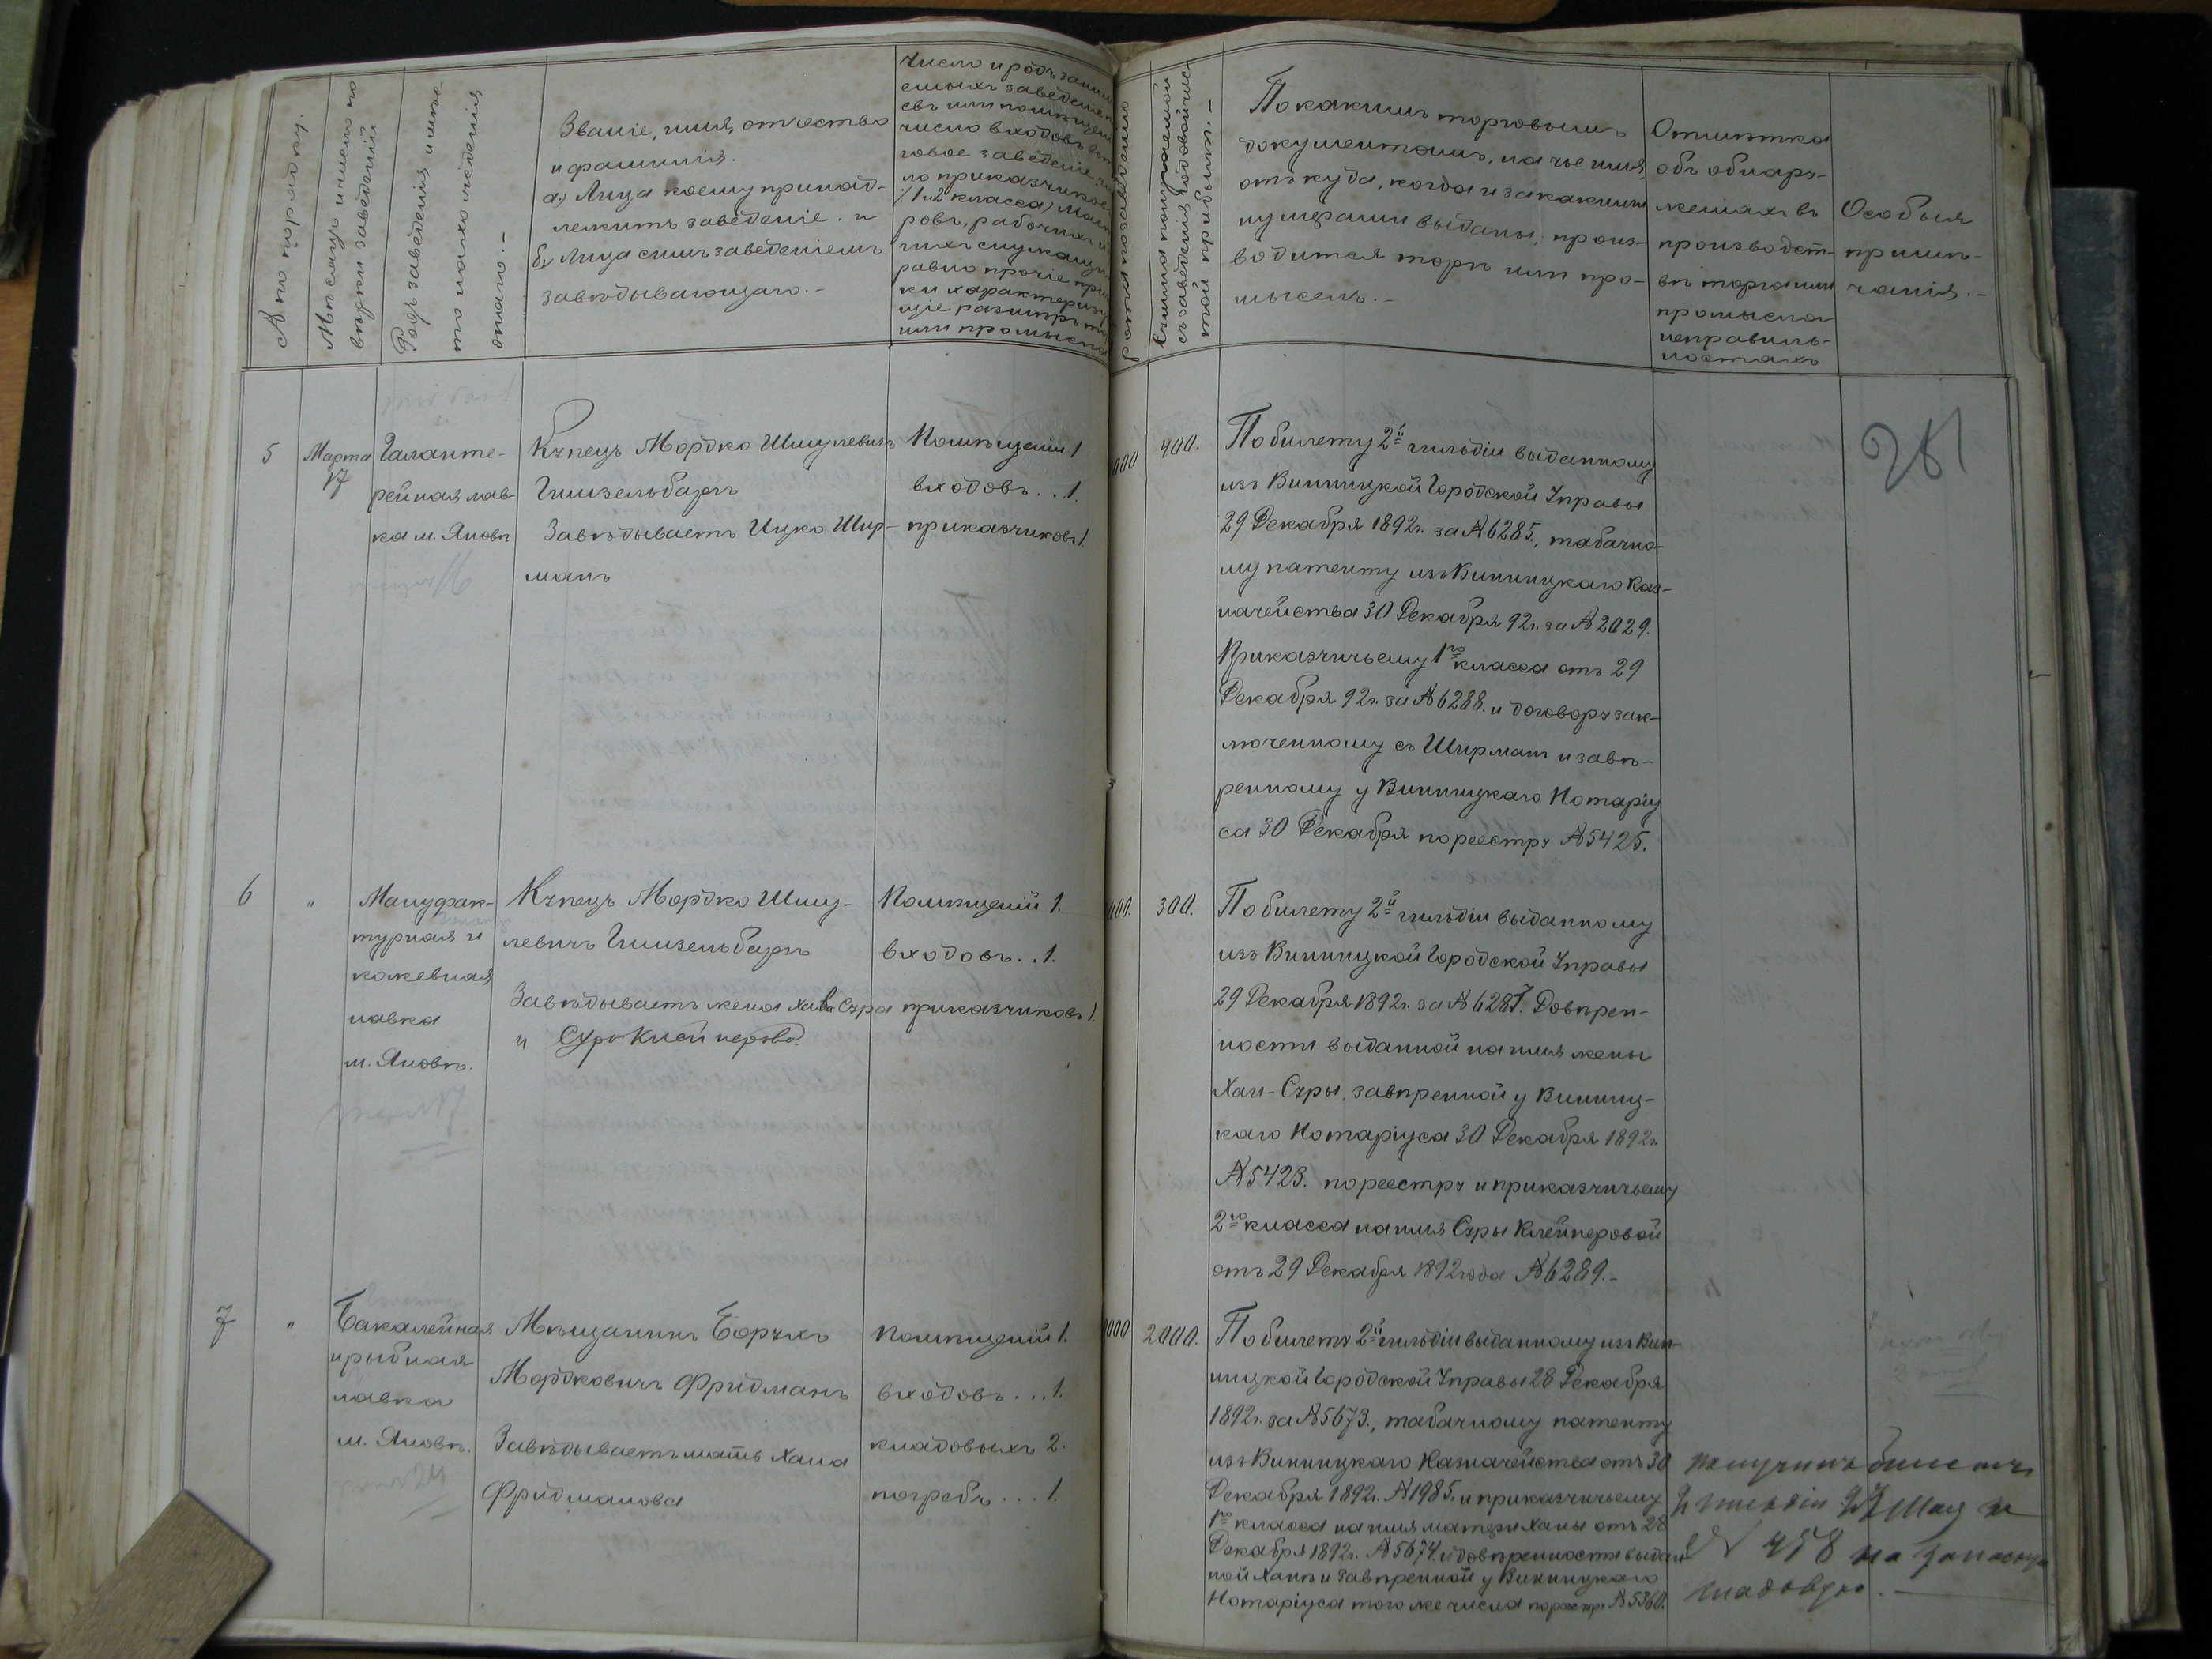 № по порядку.
Мѣсяцъ и число по
вѣрки заведеній
Родъ заведенія и мѣс-
то нахожденія
онаго.-
Званіе, имя, отчество
и фамилія.
а) Лица коему принад-
лежитъ заведеніе. и
б) Лица симъ заведеніемъ
завѣдывающаго.-
Число и родъ заним
емыхъ заведеніе
число входовъ
говое заведеніе
ло приказчиков
1 и 2 класса)
ровъ, рабочихъ и
равно прочіе
ки характериз
щіе размѣръ
или промысла
съ заведенія годовой чис-
той прибыли.-
По какимъ торговымъ
документамъ, на чье имя,
откуда, когда и за какими
нумерами выданы, произ-
водится торгъ или про-
мыселъ.-
Отмѣтка
объ обнару-
женіяхъ въ
производст-
вѣ торга или
промысла
неправиль-
ностяхъ
Особыя
примѣ-
чанія.-
281
5
Марта
17
Галанте-
рейная лав-
ка м. Яновѣ
Купецъ Мордко Шмулевичъ
Гимзельбаръ
Завѣдываетъ Ицко Шур-
манъ
Помѣщеній 1
входовъ . . 1.
приказчиковъ 1.
000
400.
По билету 2й гильдіи выданному
изъ Винницкой Городской Управы
29 Декабря 1892г. за №6285., табачно-
му патенту изъ Винницкаго Каз-
начейства 30 Декабря 92г. за №2029.
Приказчичьему 1го класса отъ 29
Декабря 92г. за №6288. и договору зак-
люченному съ Шурман и завѣ-
ренному у Винницкаго Нотаріу
са 30 Декабря по реестру №5425.
6
"
Мануфак-
турная и
кожевная
лавка
м. Яновѣ.
Купецъ Мордко Шму-
левичъ Гимзельбаръ
Завѣдываетъ жена Хая Сура
и Сура Клейнерова.
Помѣщеній 1.
входовъ. . 1.
приказчиковъ 1.
000.
300.
По билету 2й гильдіи выданному
изъ Винницкой Городской Управы
29 Декабря 1892г. за №6287. Довѣрен-
ности выданной на имя жены
Хаи-Суры, завѣренной у Винниц-
каго Нотаріуса 30 Декабря 1892г.
№5423. по реестру и приказчичьему
2го класса на имя Суры Клейнеровой
отъ 29 Декабря 1892 года №6289.-
7
"
Бакалейная
и рыбная
лавка
м. Яновѣ.
Мѣщанинъ Борухъ
Мордковичъ Фридманъ
Завѣдываетъ мать Хана
Фридманова
Помѣщеній 1.
входовъ . . . 1.
кладовыхъ 2.
погребъ . . . 1.
000
2000.
По билету 2й гильдіи выданному изъ Вин-
ницкой Городской Управы 28 Декабря
1892г. за №5673., табачному патенту
изъ Винницкаго Казначейства отъ 30
Декабря 1892г. №1985. и приказчичьему
1го класса на имя матери Ханы отъ 28
Декабря 1892г. №5674. и довѣренности выдан
ной Ханѣ и завѣренной у Винницкаго
Нотаріуса того же числа по реестру №5360.
Полученъ билетъ
2 гильдіи Мая
№ 458 на запасную
кладовую.